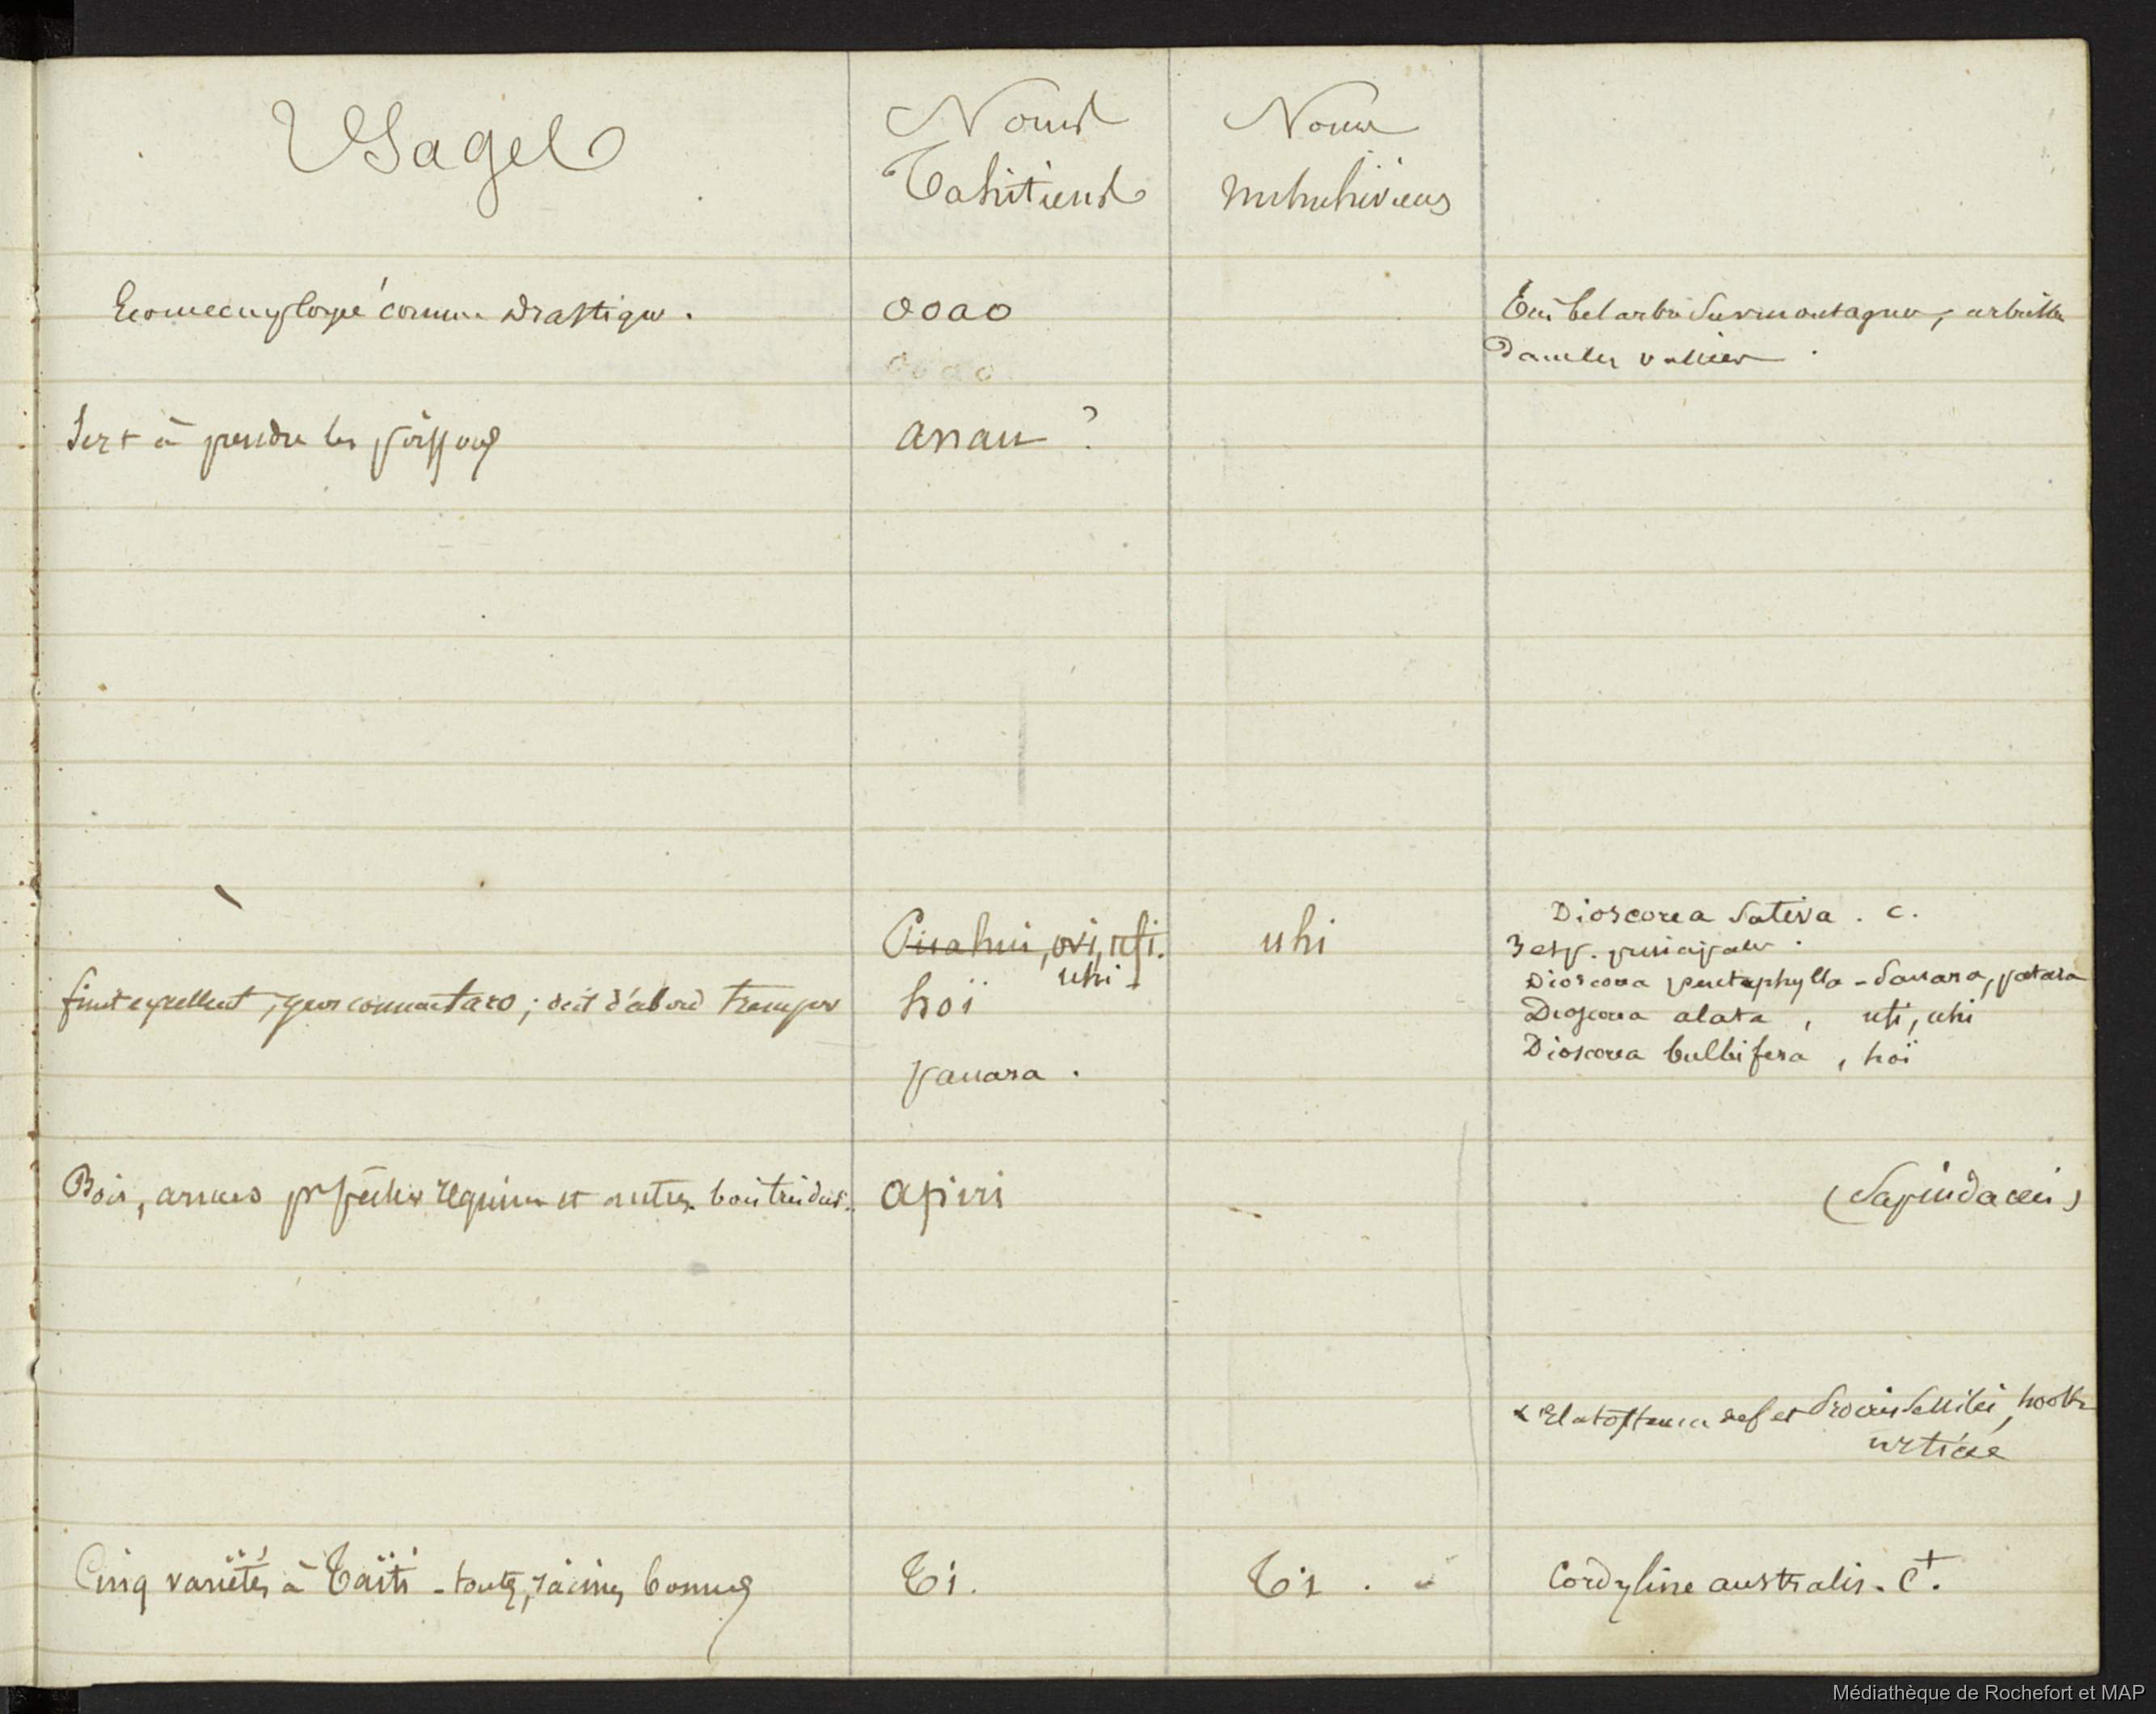 Usages
Noms
Tahitiens
Noms
nuhuhiviens
Ecorce employée comme drastique.
ooao
Très bel arbre sur montagnes, arbuste
dans les vallées.
oo ao
Sert à prendre les poissons
anau ?
uhi
ovi, ufi.
uhi
Dioscorea sativa. c.
3 esp. principales.
Dioscorea pentaphylla - pauara, patara
Dioscorea alata, ufi, uhi
Dioscorea bulbifera, hoï
fruit excellent, gros comme taro ; doit d'abord tremper
hoï
pauara.
Bois, armes pr pêcher requins et autres. bois très dur.
apiri
(Sapindacées)
Elatostema sessile
urticée
Cinq variétés à Taïti - toutes, racines bonnes
Ti.
Ti.
Cordyline australis. C+.
Médiathèque de Rochefort et MAP